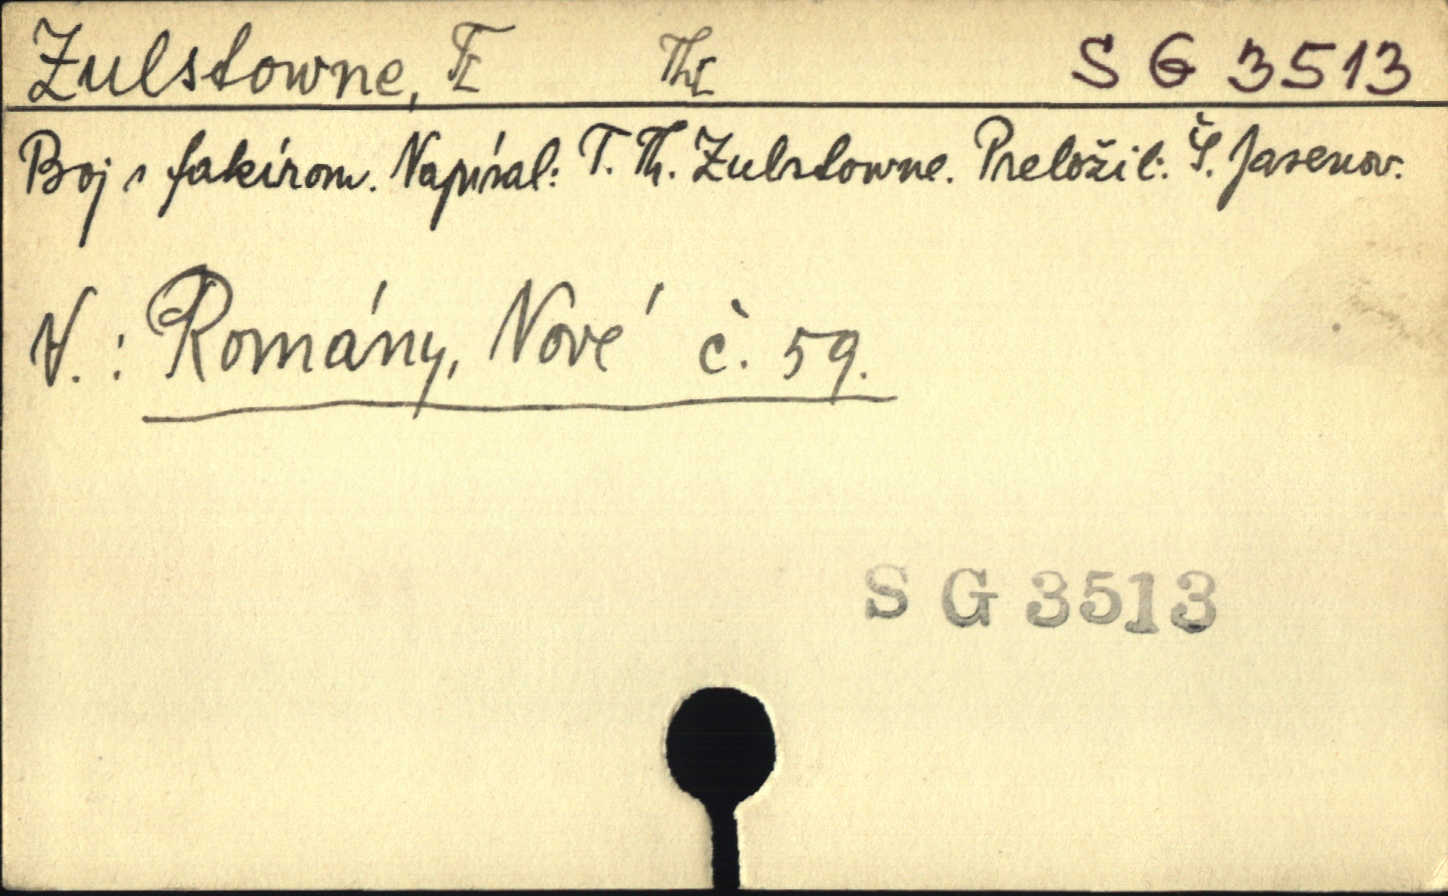 Zulstowne, T[ Th[ S G 3513
Boj s fakírom. Napísal: T. Th. Zulstowne. Preložil: Š. Jasenov.
V.: Romány, Nové č. 59.
S G 3513